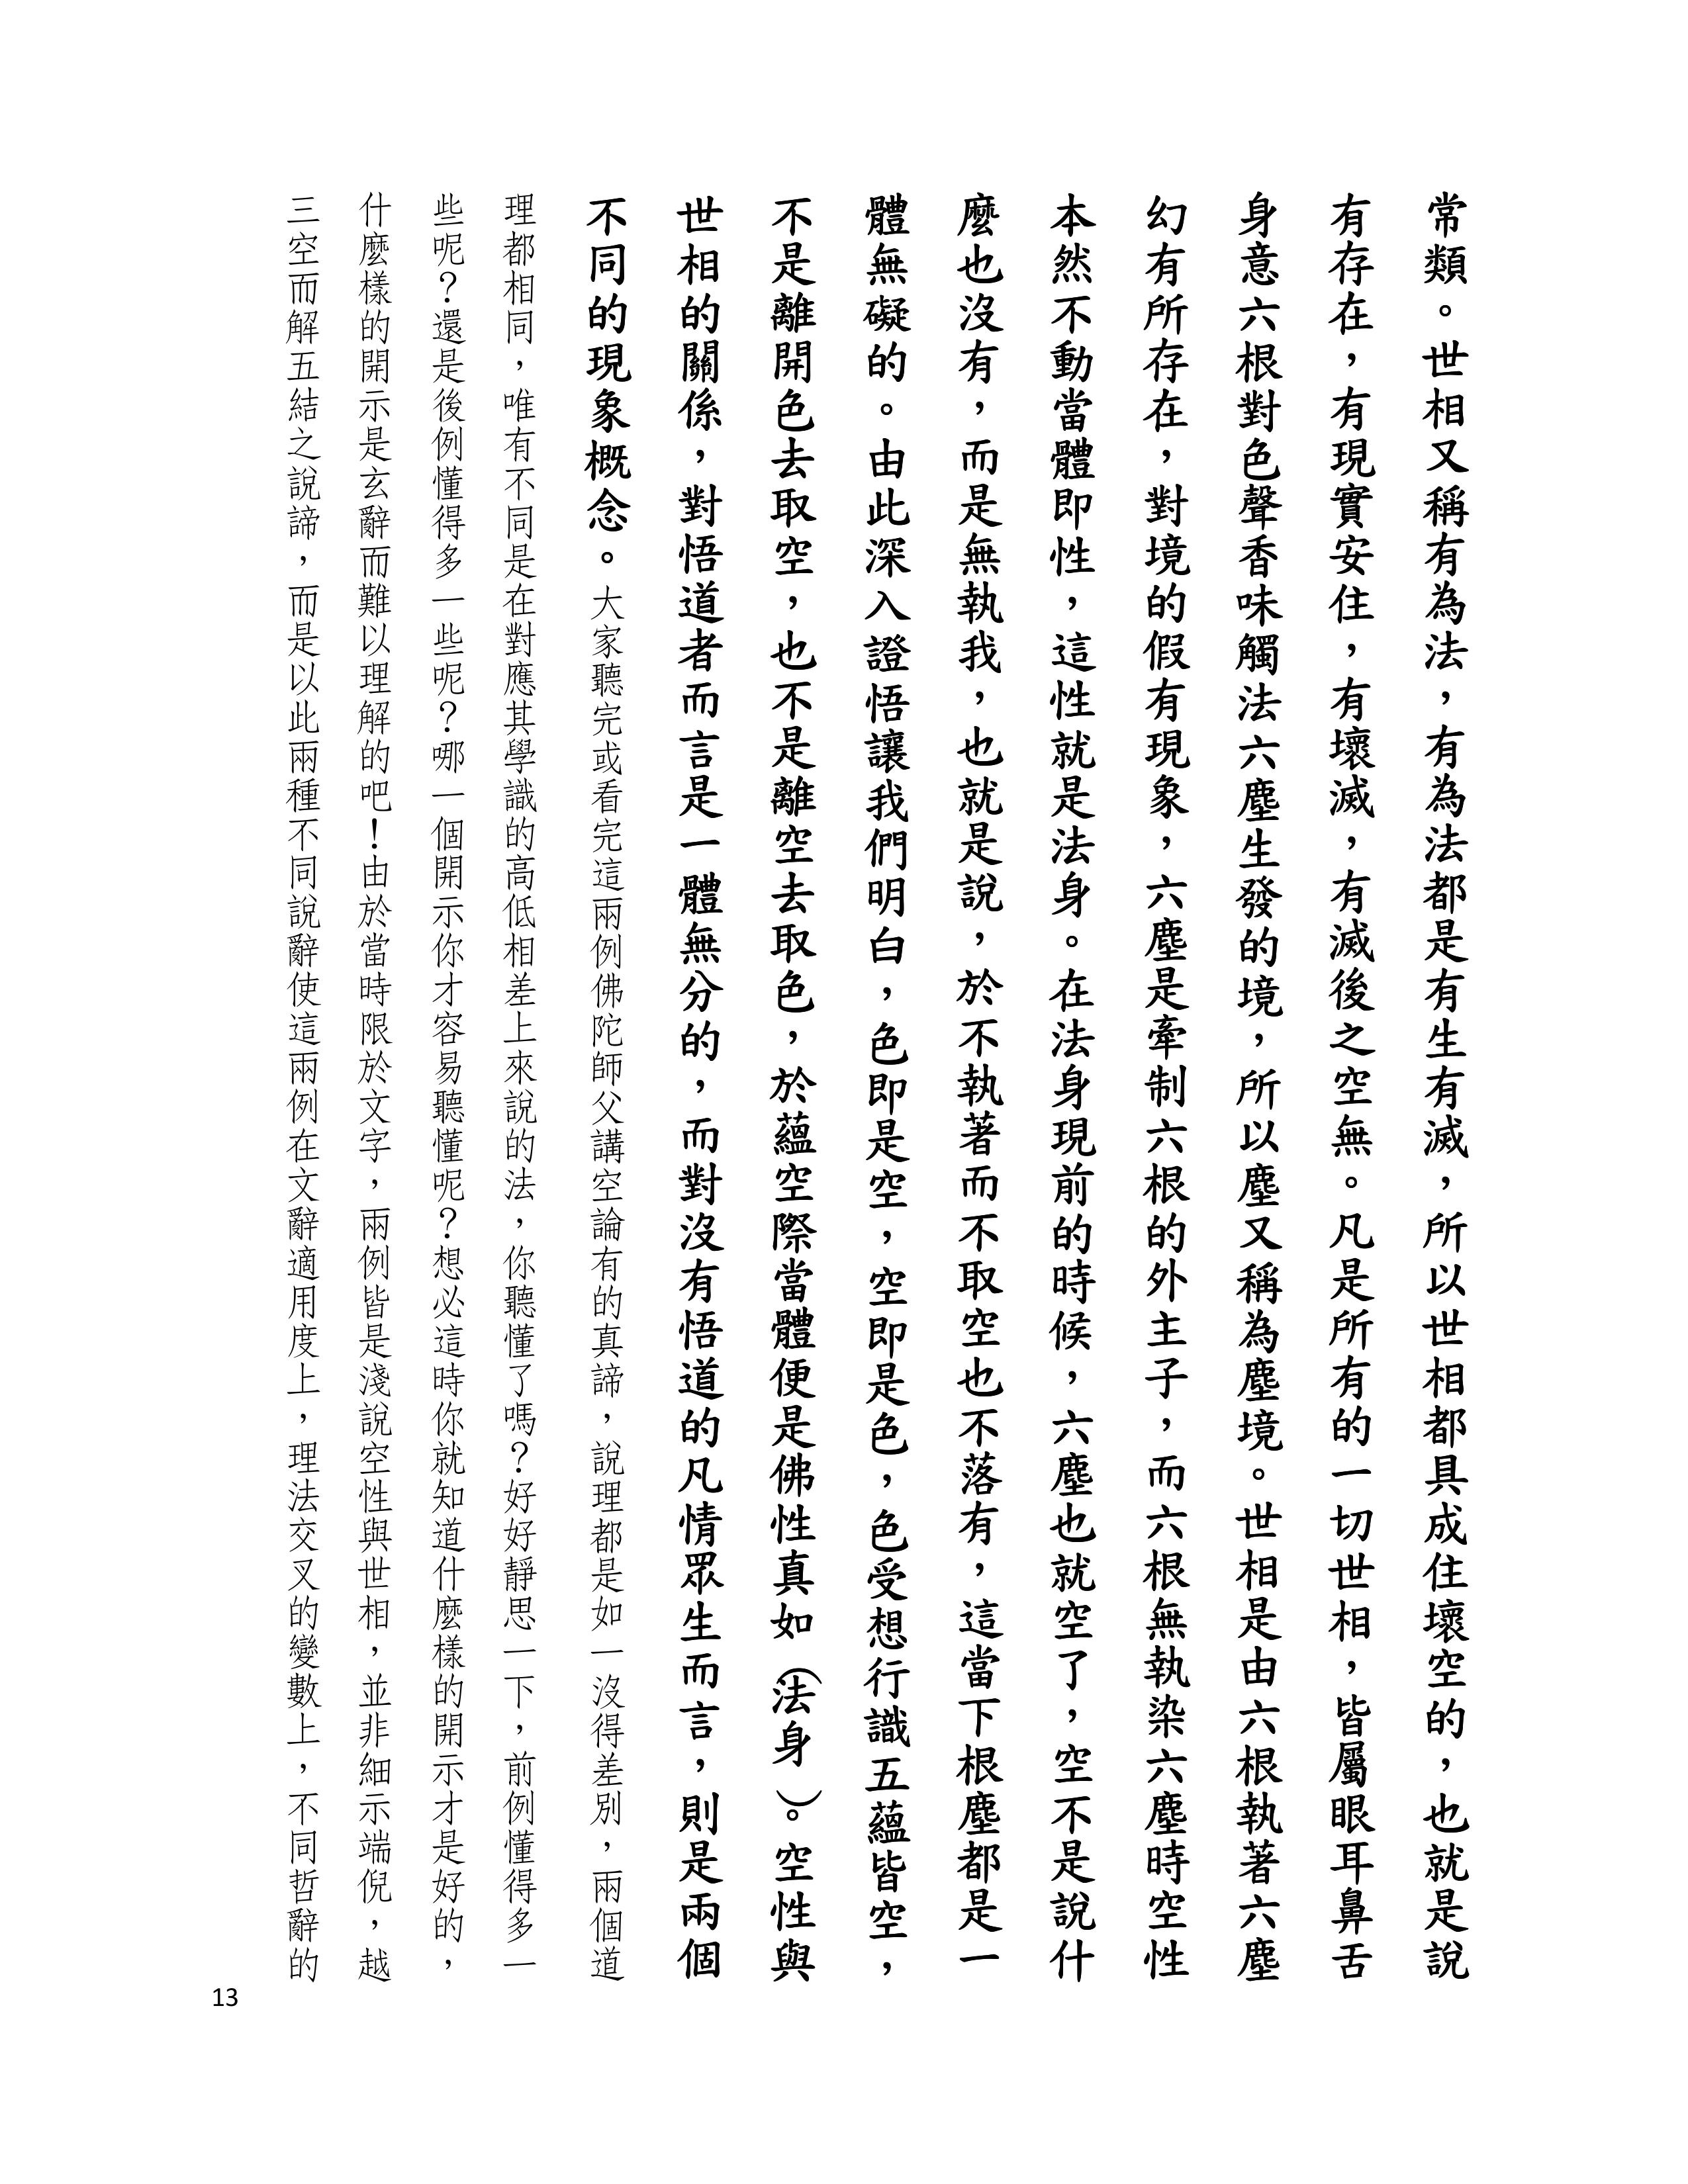 常類。世相又稱有為法，有為法都是有生有滅，所以世相都具成住壞空的，也就是說
有存在，有現實安住，有壞滅，有滅後之空無。凡是所有的一切世相，皆屬眼耳鼻舌
身意六根對色聲香味觸法六塵生發的境，所以塵又稱為塵境。世相是由六根執著六塵
幻有所存在，對境的假有現象，六塵是牽制六根的外主子，而六根無執染六塵時空性
本然不動當體即性，這性就是法身。在法身現前的時候，六塵也就空了，空不是說什
麼也沒有，而是無執我，也就是說，於不執著而不取空也不落有，這當下根塵都是一
體無礙的。由此深入證悟讓我們明白，色即是空，空即是色，色受想行識五蘊皆空，
不是離開色去取空，也不是離空去取色，於蘊空際當體便是佛性真如（法身）。空性與
世相的關係，對悟道者而言是一體無分的，而對沒有悟道的凡情眾生而言，則是兩個
不同的現象概念。大家聽完或看完這兩例佛陀師父講空論有的真諦，說理都是如一沒得差別，兩個道
理都相同，唯有不同是在對應其學識的高低相差上來說的法，你聽懂了嗎？好好靜思一下，前例懂得多一
些呢？還是後例懂得多一些呢？哪一個開示你才容易聽懂呢？想必這時你就知道什麼樣的開示才是好的，
什麼樣的開示是玄辭而難以理解的吧！由於當時限於文字，兩例皆是淺說空性與世相，並非細示端倪，越
三空而解五結之說諦，而是以此兩種不同說辭使這兩例在文辭適用度上，理法交叉的變數上，不同哲辭的
13